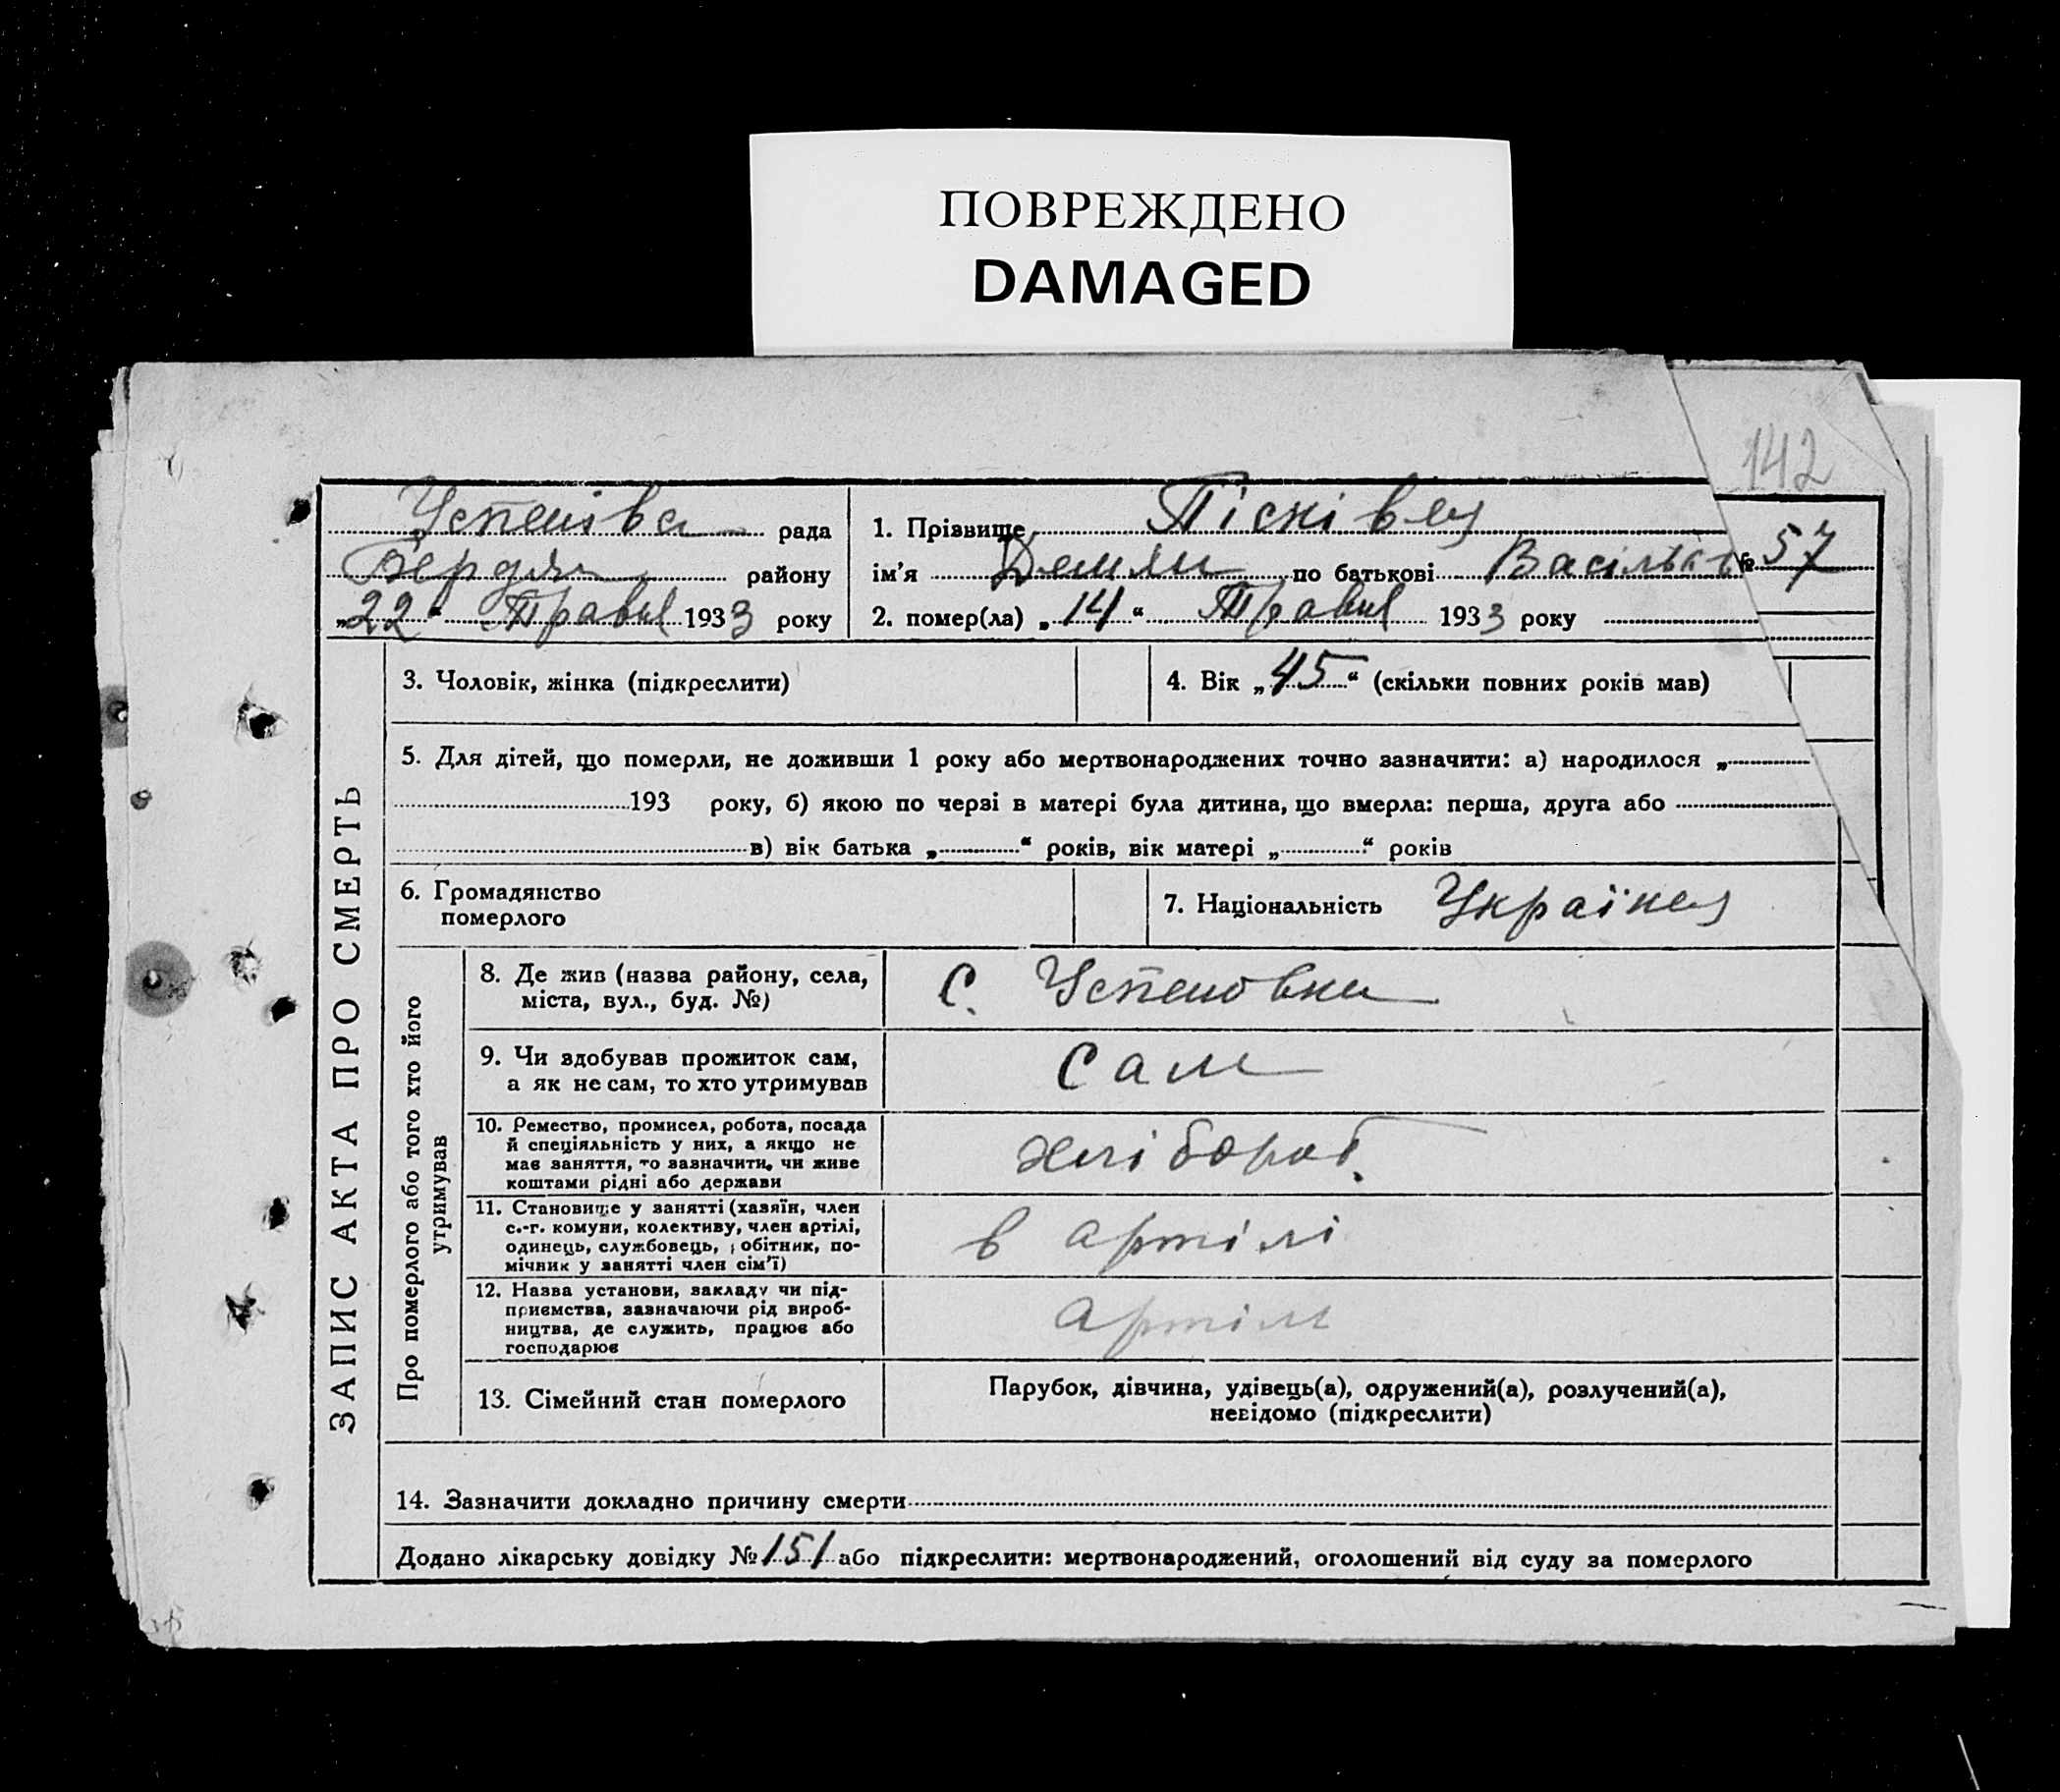 ПОВРЕЖДЕНО
DAMAGED
142
рада
району
„22“ Травн 1933 року
1. Прізвище Пісківец
ім’я Демян по батькові
№ 57
2. помер(ла) „14“ Травн 1933 року
ЗАПИС АКТА ПРО СМЕРТЬ
3. Чоловік, жінка (підкреслити)
4. Вік „45“ (скільки повних років мав)
5. Для дітей, що померли, не доживши 1 року або мертвонароджених точно зазначити: а) народилося „
193 року, б) якою по черзі в матері була дитина, що вмерла: перша, друга або
в) вік батька „ “ років, вік матері „ “ років
6. Громадянство
померлого
7. Національність Українец
Про померлого або того хто його
утримував
8. Де жив (назва району, села,
міста, вул., буд. №)
с. Успеновка
9. Чи здобував прожиток сам,
а як не сам, то хто утримував
сам
10. Ремество, промисел, робота, посада
й спеціяльність у них, а якщо не
має заняття, то зазначити, чи живе
коштами рідні або держави
хлібороб
11. Становище у занятті (хазяїн, член
с.-г. комуни, колективу, член артілі,
одинець, службовець, робітник, по-
мічник у занятті член сім’ї)
в артілі
12. Назва установи, закладу чи під-
приємства, зазначаючи рід вироб-
ництва, де служить, працює або
господарює
артіл
13. Сімейний стан померлого
Парубок, дівчина, удівець(а), одружений(а), розлучений(а),
невідомо (підкреслити)
14. Зазначити докладно причину смерти
Додано лікарську довідку № 151 або підкреслити: мертвонароджений, оголошений від суду за померлого